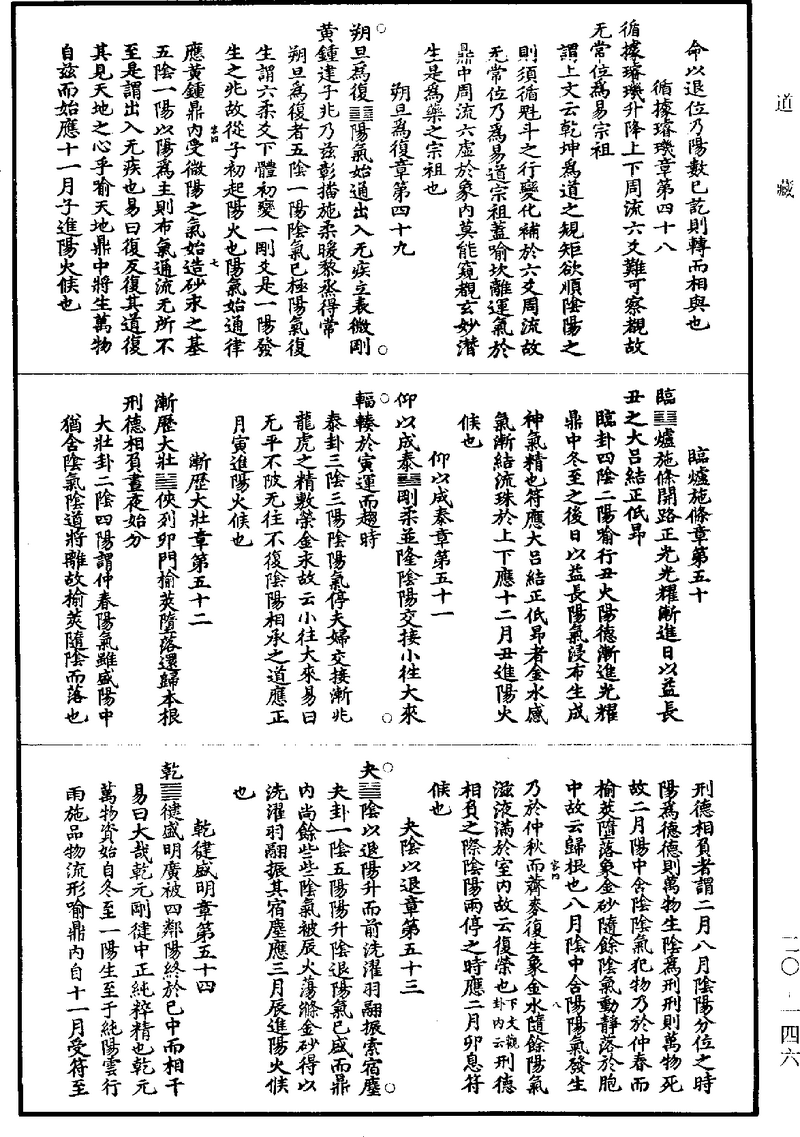 道藏
命以退位乃陽數已訖則轉而相與也
循據璿璣章第四十八
循據璿璣升降上下周流六爻難可察覩故
无常位為易宗祖
謂上文云乾坤為道之規矩欲順陰陽之
則須循魁斗之行變化補於六爻周流故
无常位乃為易道宗祖蓋喻坎離運氣於
鼎中周流六虛於象內莫能窺覩玄妙潛
生是為藥之宗祖也
朔旦為復章第四十九
朔旦為復䷗陽氣始通出入无疾立表微剛
黃鍾建子兆乃兹彰播施柔暖黎烝得常
朔旦為復者五陰一陽陰氣已極陽氣復
生謂六柔爻下體初變一剛爻是一陽發
生之兆故從子初起陽火也陽氣始通律
應黃鍾鼎內受微陽之氣始造砂汞之基
五陰一陽以陽為主則布氣通流无所不
至是謂出入无疾也易曰復反復其道復
其見天地之心乎喻天地鼎中將生萬物
自兹而始應十一月子進陽火候也
臨爐施條章第五十
臨䷒爐施條開路正光光耀漸進日以益長
丑之大呂結正低昂
臨卦四陰二陽喻行丑火陽德漸進光耀
鼎中冬至之後日以益長陽氣浸布生成
神氣精也符應大呂結正低昂者金水感
氣漸結流珠於上下應十二月丑進陽火
候也
仰以成泰章第五十一
仰以成泰䷊剛柔並隆陰陽交接小往大來
輻輳於寅運而趨時
泰卦三陰三陽陰陽氣停夫婦交接漸兆
龍虎之精敷榮金汞故云小往大來易曰
无平不陂无往不復陰陽相承之道應正
月寅進陽火候也
漸歷大壯章第五十二
漸歷大壯䷡俠列卯門榆莢墮落還歸本根
刑德相負晝夜始分
大壯卦二陰四陽謂仲春陽氣雖盛陽中
猶含陰氣陰道將離故榆莢隨陰而落也
刑德相負者謂二月八月陰陽分位之時
陽為德德則萬物生陰為刑刑則萬物死
故二月陽中含陰陰氣犯物乃於仲春而
榆莢墮落象金砂隨餘陰氣動靜落於胞
中故云歸根也八月陰中含陽陽氣發生
乃於仲秋而薺麥復生象金水隨餘陽氣
滋液滿於室內故云復榮也下文觀卦內云刑德
相負之際陰陽兩停之時應二月卯息符
候也
夬陰以退章第五十三
夬䷪陰以退陽升而前洗濯羽翮振索宿塵
夬卦一陰五陽陽升陰退陽氣已盛而鼎
內尚餘些些陰氣被辰火蕩滌金砂得以
洗濯羽翮振其宿塵應三月辰進陽火候
也
乾健盛明章第五十四
乾䷀健盛明廣被四鄰陽終於巳中而相干
易曰大哉乾元剛健中正純粹精也乾元
萬物資始自冬至一陽生至于純陽雲行
雨施品物流形喻鼎內自十一月受符至
二〇-一四六